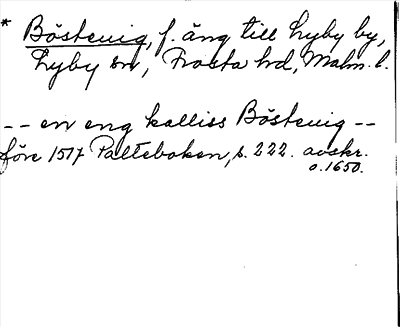 * Böstenig, f. äng till Lyby by,
Lyby sn, Frosta hd, Malm. l.
-- en eng kalliss Böstenig --
före 1517 Palteboken, s. 222. avskr.
o. 1650.